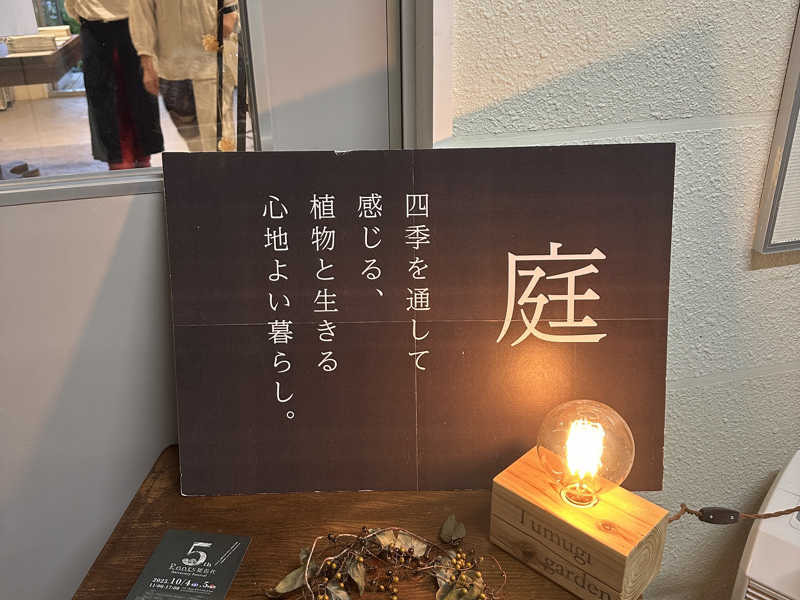 庭
四季を通して
感じる、
植物と生きる
心地よい暮らし。
Tumugi
garden
5th
2025.10/4
11:00-17:00